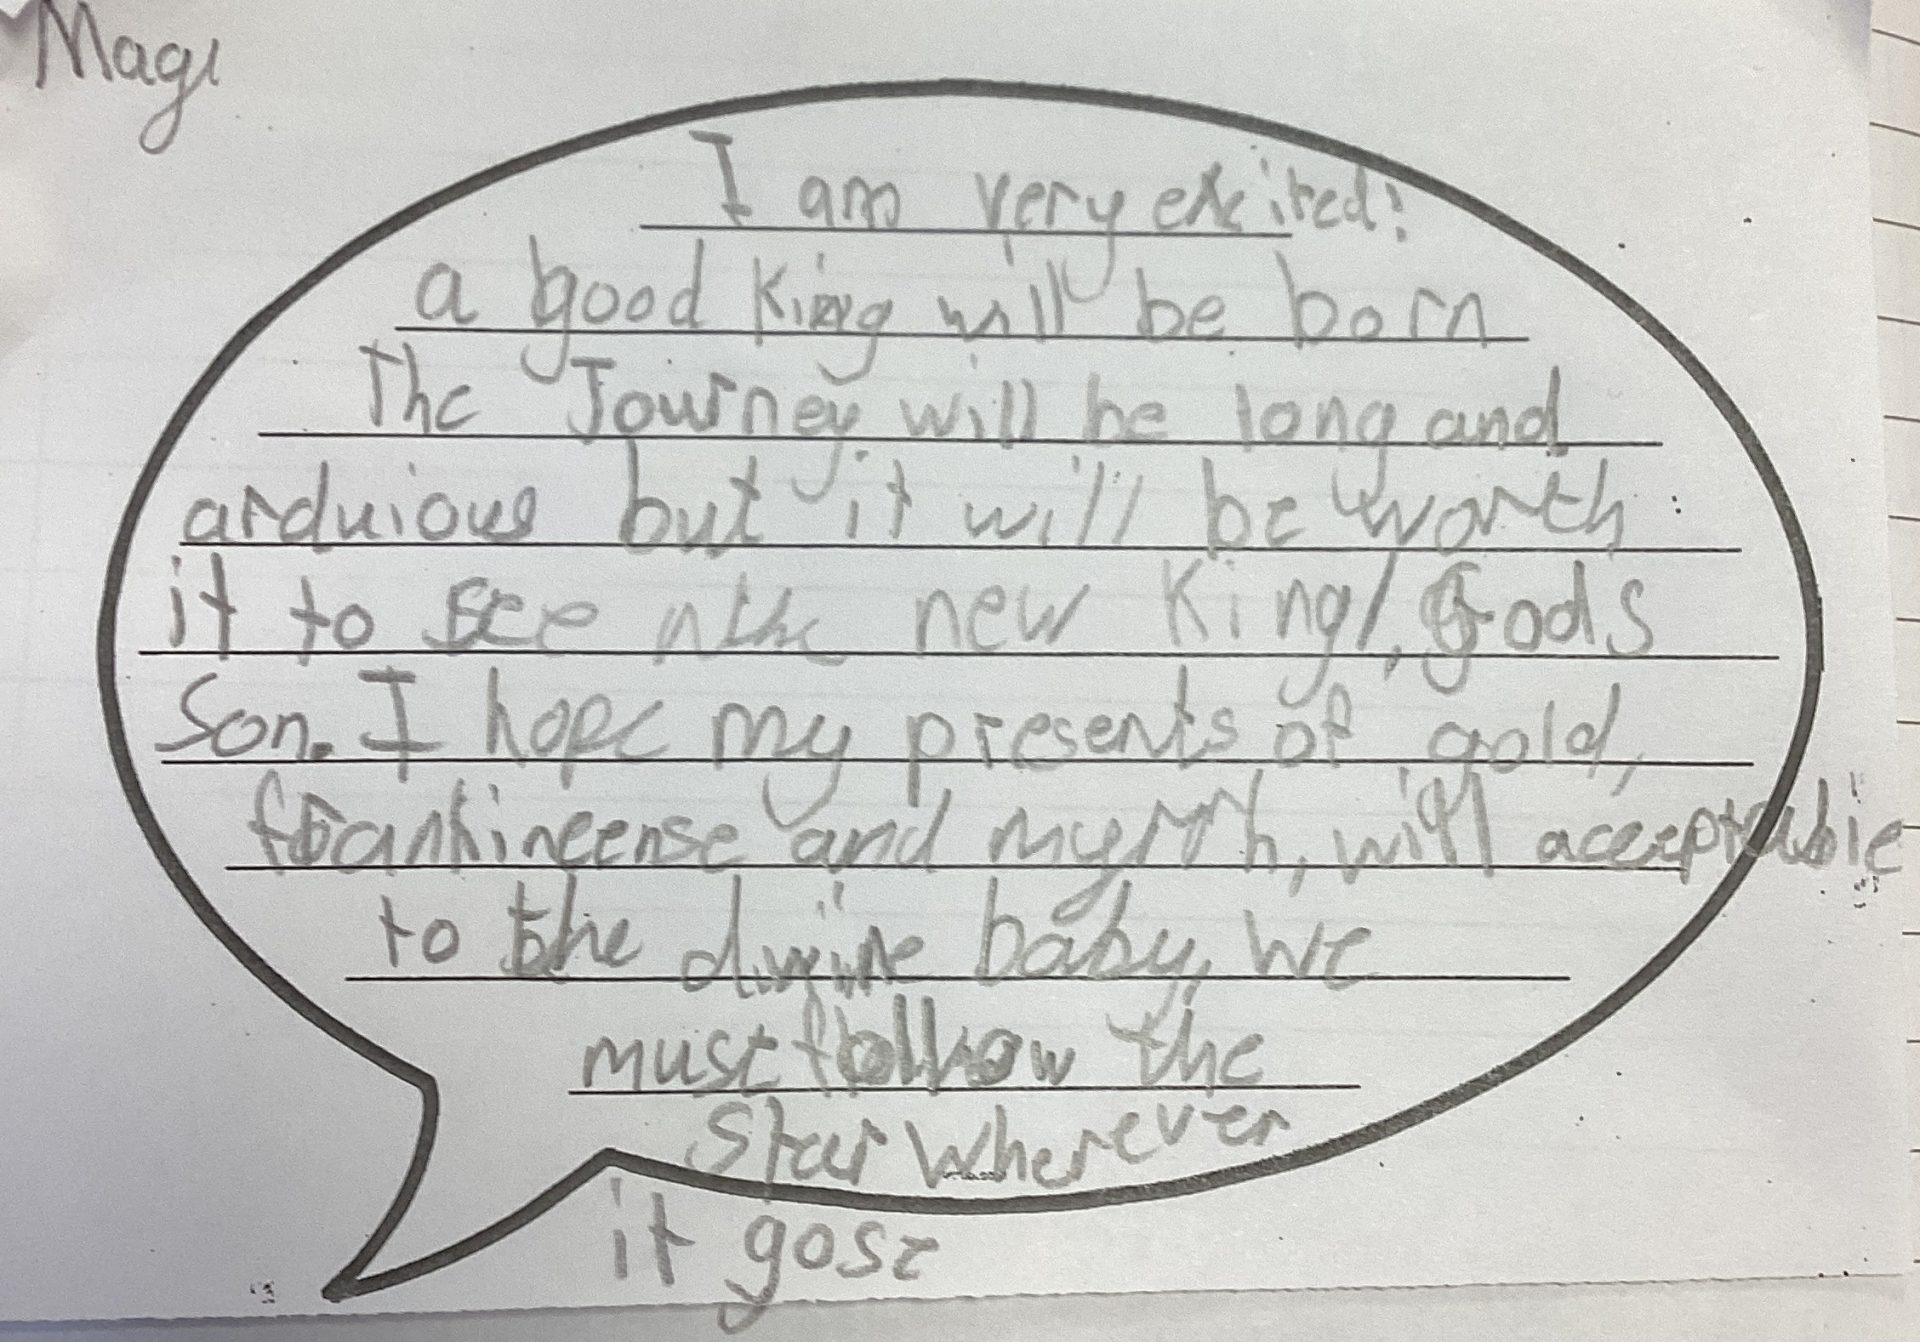 Magi
I am very excited!
a good King will be born
The Journey will be long and
arduious but it will be worth
it to see the new King, Gods
Son. I hope my presents of gold,
frankincense and myrrh, will acceptable
to the divine baby, we
must follow the
Star wherever
it gose